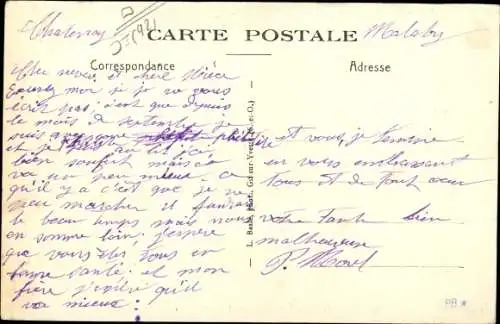 Chatenay
CARTE POSTALE
Malabry
Correspondance
Adresse
Cher neveu et chère Nièce
Excusez moi si je ne vous
écrit pas. c'est que depuis
le mois de septembre je
suis avec une phlébite
et je
bien souffert mais ça
va un peu mieux. ce
qu'il y a c'est que je ne
peu marcher il faudrai
le beau temps mais nous
en somme loin. j'espère
que vous êtes tous en
bonne santé. et mon
frère j'espère qu'il
va mieux.
et vous, je termine
en vous embrassant
tous et de tout cœur
votre Tante bien
malheureuse
P. Morel
PB